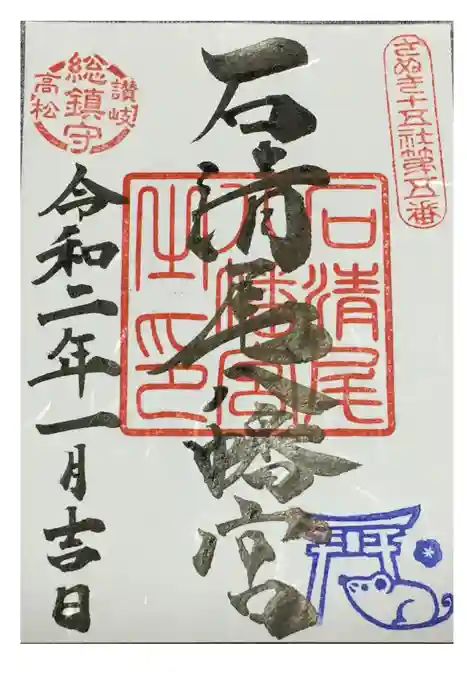 さぬき十五社第五番
石清尾八幡宮
石清尾
八幡宮
之印
讃岐
総鎮守
高松
令和二年一月吉日